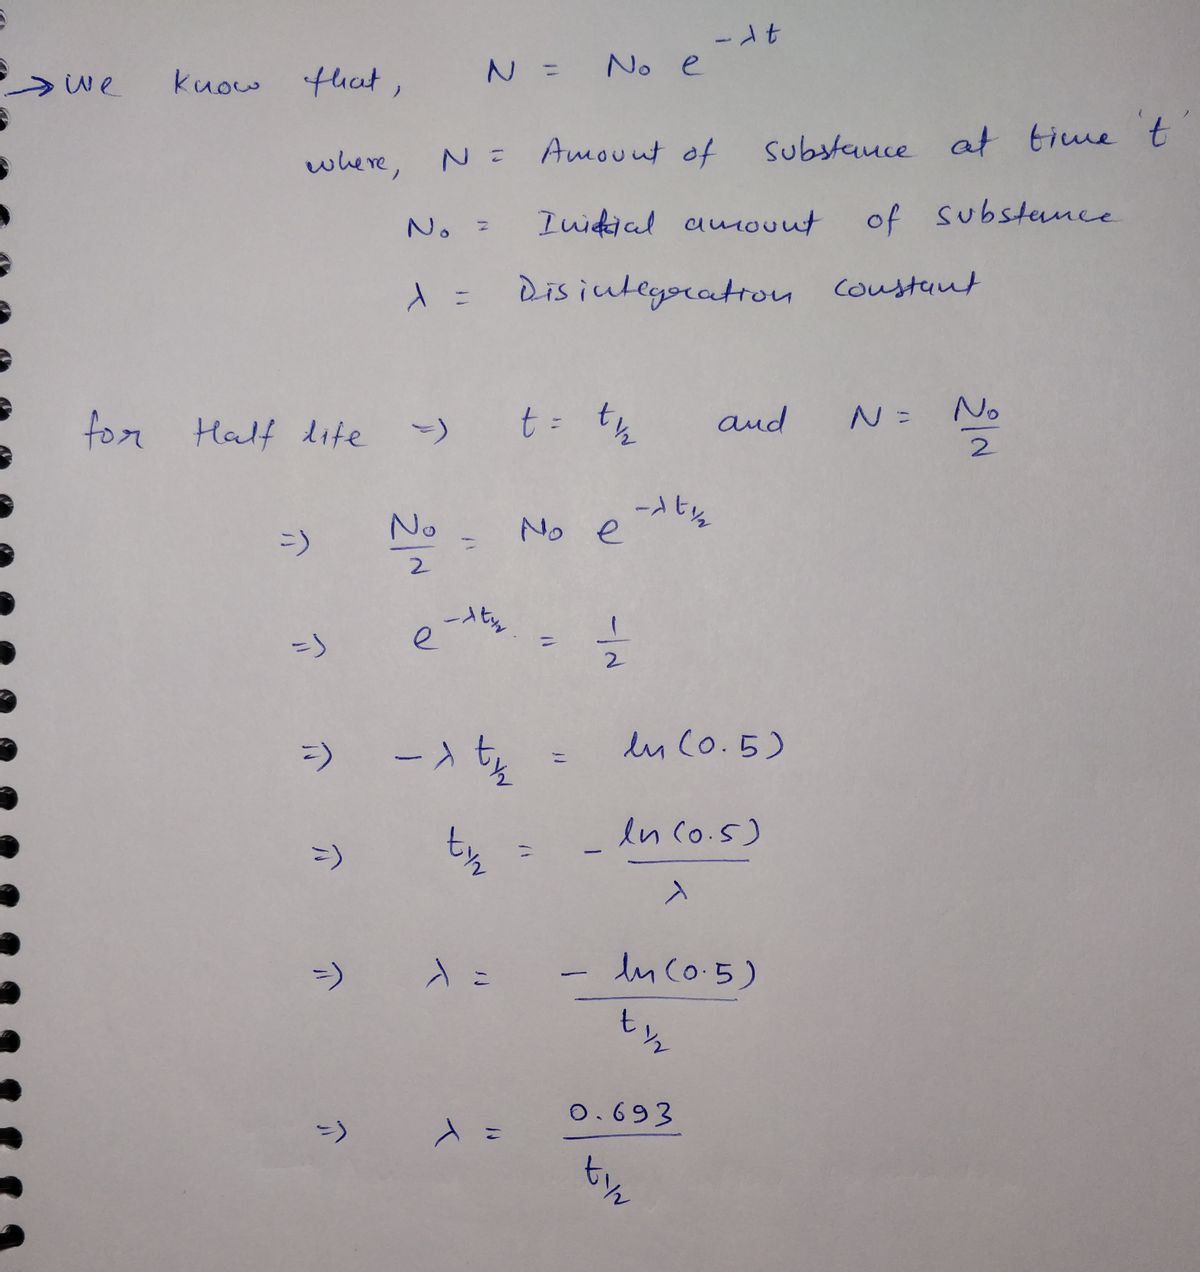 → we know that, N = N₀ e^(-λt)
where, N = Amount of substance at time 't'
N₀ = Initial amount of substance
λ = Disintegration constant
for Half life => t = t_(1/2) and N = N₀/2
=> N₀/2 = N₀ e^(-λt_(1/2))
=> e^(-λt_(1/2)) = 1/2
=> -λ t_(1/2) = ln(0.5)
=> t_(1/2) = - ln(0.5)/λ
=> λ = - ln(0.5)/t_(1/2)
=> λ = 0.693/t_(1/2)